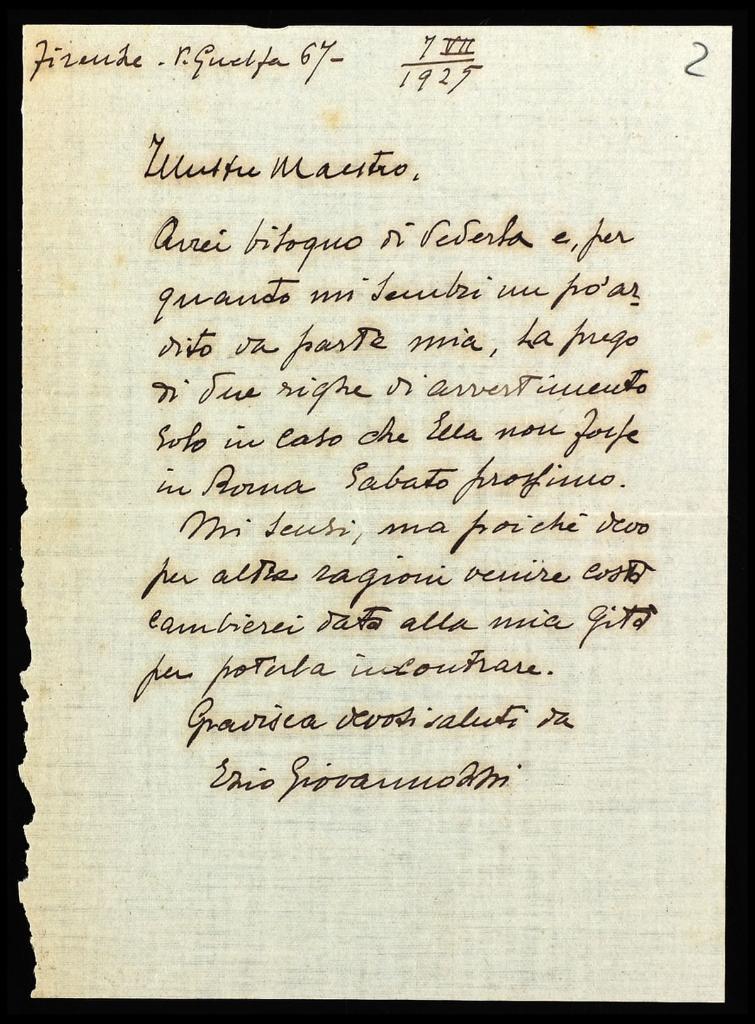 Firenze - V. Guelfa 67 - 7 VII 1925
2
Illustre Maestro,
Avrei bisogno di vederla e, per
quanto mi sembri un po' ar-
dito da parte mia, La prego
di due righe di avvertimento
solo in caso che Ella non fosse
in Roma Sabato prossimo.
Mi scusi, ma poiché devo
per altre ragioni venire costà
cambierei data alla mia gita
per poterla incontrare.
Gradisca devoti saluti da
Ezio Giovannozzi